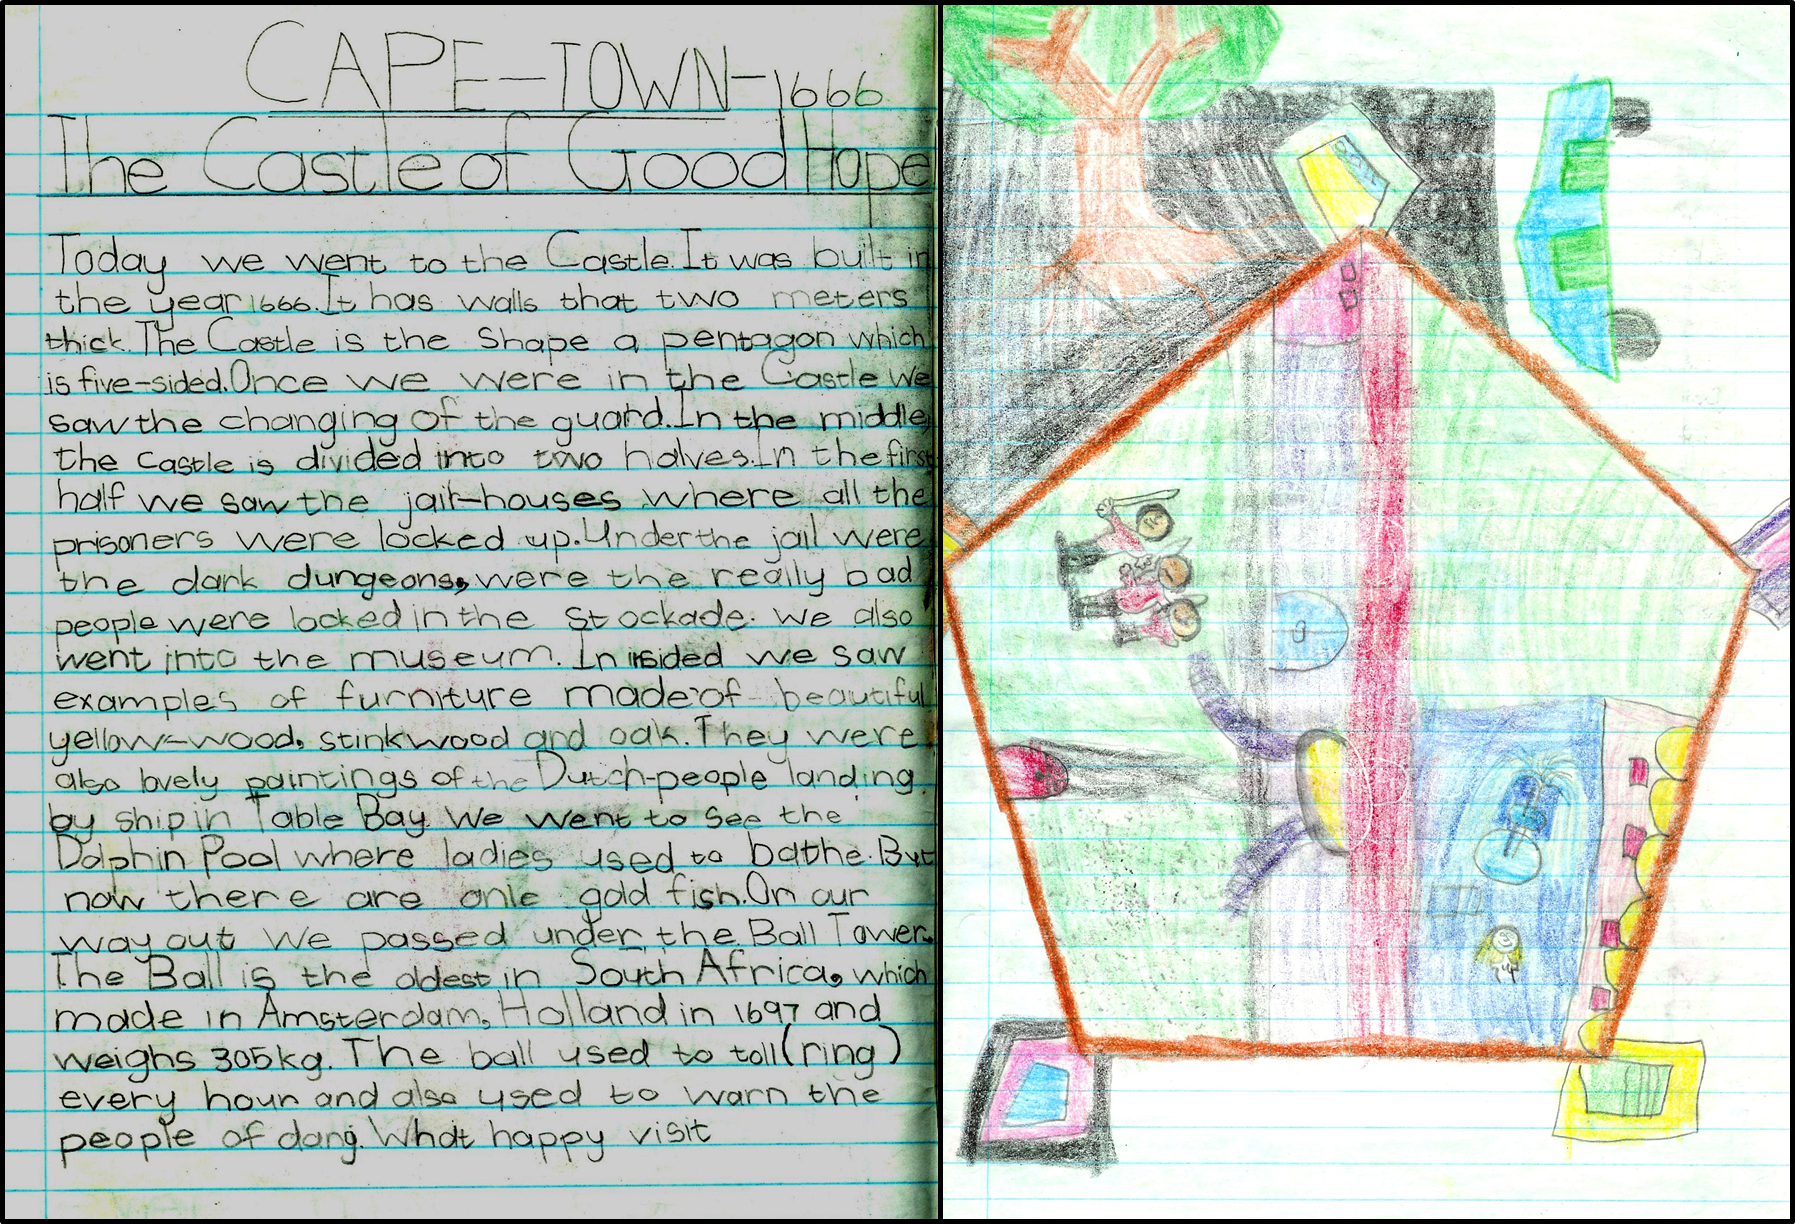 CAPE-TOWN-1666
The Castle of Good Hope
Today we went to the Castle. It was built in
the year 1666. It has walls that two meters
thick. The Castle is the Shape a pentagon which
is five-sided. Once we were in the Castle We
saw the changing of the guard. In the middle,
the castle is divided into two halves. In the first
half we saw the jail-houses where all the
prisoners were locked up. Under the jail were
the dark dungeons, were the really bad
people were locked in the stockade. We also
went into the museum. In insided we saw
examples of furniture made of beautiful
yellow-wood, stinkwood and oak. They were
also lovely paintings of the Dutch-people landing
by ship in Table Bay. We went to see the
Dolphin Pool where ladies used to bathe. But
now there are onle gold fish. On our
way out we passed under the Ball Tower.
The Ball is the oldest in South Africa, which
made in Amsterdam, Holland in 1697 and
weighs 305kg. The ball used to toll (ring)
every hour and also used to warn the
people of dang. What happy visit